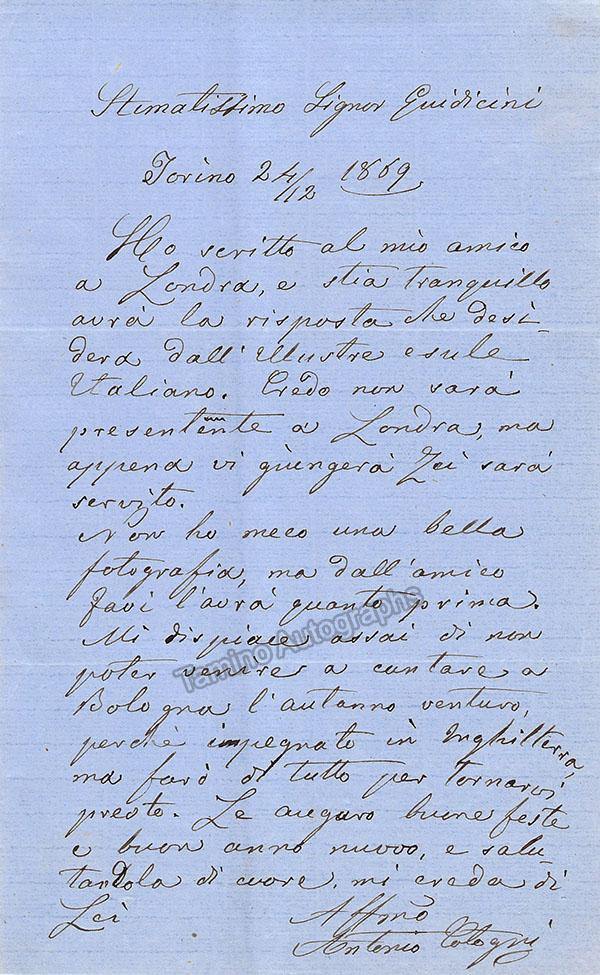 Stimatissimo Signor Guidicini
Torino 24/12 1869
Ho scritto al mio amico
a Londra, e stia tranquillo
avrà la risposta che desi-
dera dall'illustre esule
Italiano. Credo non sarà
a Londra, ma
appena vi giungerà Lei sarà
servito.
Non ho meco una bella
fotografia, ma dall'amico
l'avrà quanto prima.
Mi dispiace assai di non
poter venire a cantare a
Bologna l'autunno venturo,
perchè impegnato in Inghilterra,
ma farò di tutto per tornarvi
presto. Le auguro buone feste
e buon anno nuovo, e salu-
tandola di cuore, mi creda di
Lei Affmo
Antonio Cotogni
Tamino Autographs